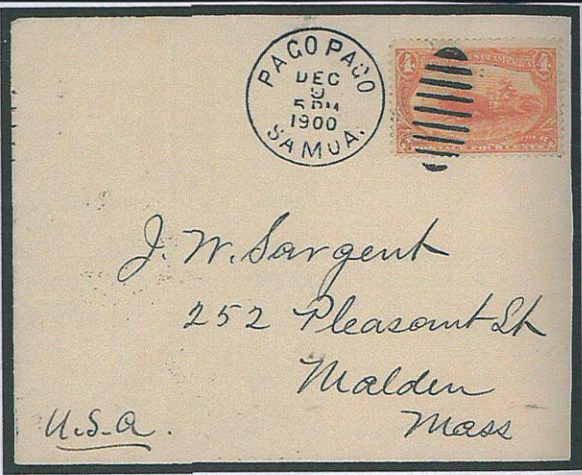 PAGO PAGO
DEC
9
5 PM
1900
SAMOA.
4 4
J. W. Sargent
252 Pleasant St
Malden
Mass
U.S.A.